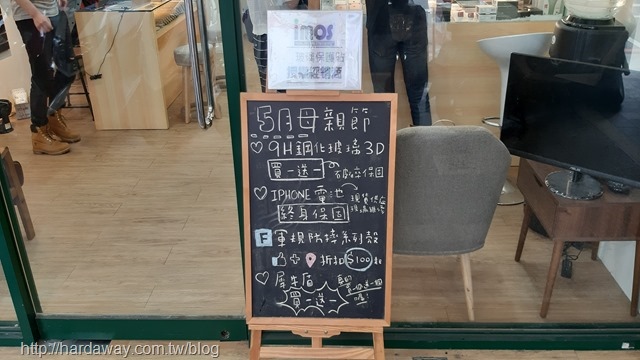 imos
5月母親節
9H鋼化玻璃3D
買一送一
IPHONE 電池
終身保固
軍規防摔系列殼
折扣$100
犀牛盾
買一送一
http://hardaway.com.tw/blog